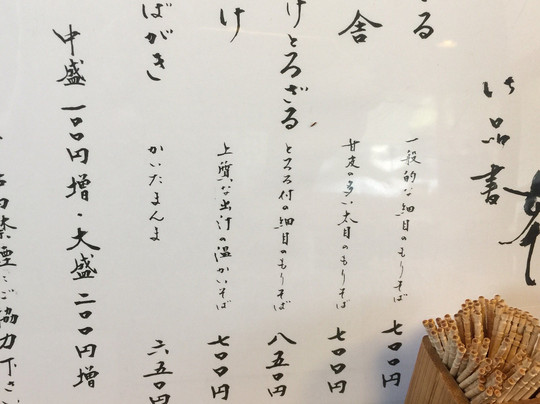 御品書
る
一般的な細目のもりそば
七〇〇円
舎
甘皮の多い太目のもりそば
七〇〇円
けとろざる
とろろ付の細目のもりそば
八五〇円
け
上質な出汁の温かいそば
七〇〇円
ばがき
かいたまんま
六五〇円
中盛一〇〇円増・大盛二〇〇円増
内禁煙にご協力下さい